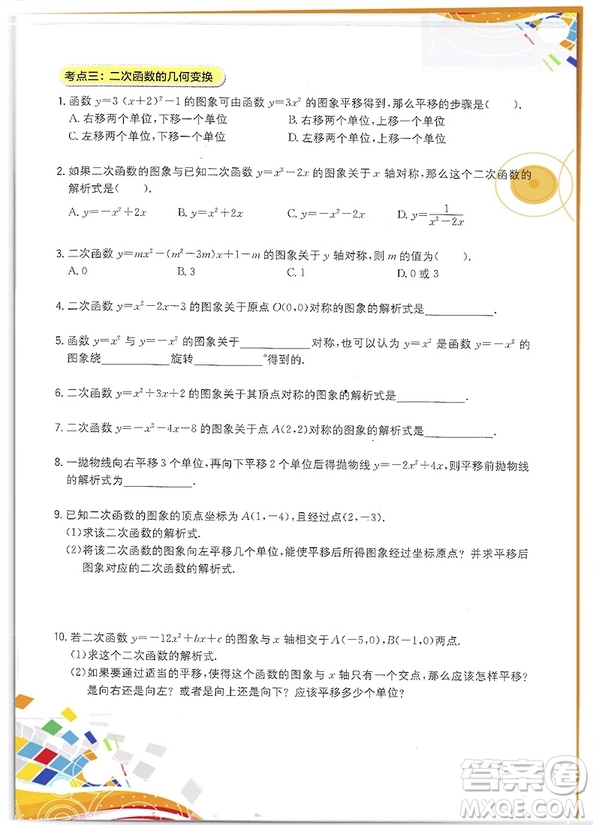 考点三：二次函数的几何变换
1. 函数 y=3(x+2)²-1 的图象可由函数 y=3x² 的图象平移得到,那么平移的步骤是(    ).
A. 右移两个单位,下移一个单位    B. 右移两个单位,上移一个单位
C. 左移两个单位,下移一个单位    D. 左移两个单位,上移一个单位
2. 如果二次函数的图象与已知二次函数 y=x²-2x 的图象关于 x 轴对称,那么这个二次函数的
解析式是(    ).
A. y=-x²+2x    B. y=x²+2x    C. y=-x²-2x    D. y=1/(x²-2x)
3. 二次函数 y=mx²-(m²-3m)x+1-m 的图象关于 y 轴对称,则 m 的值为(    ).
A. 0    B. 3    C. 1    D. 0 或 3
4. 二次函数 y=x²-2x-3 的图象关于原点 O(0,0)对称的图象的解析式是________.
5. 函数 y=x² 与 y=-x² 的图象关于________对称,也可以认为 y=x² 是函数 y=-x² 的
图象绕________旋转________°得到的.
6. 二次函数 y=x²+3x+2 的图象关于其顶点对称的图象的解析式是________.
7. 二次函数 y=-x²-4x-8 的图象关于点 A(2,2)对称的图象的解析式为________.
8. 一抛物线向右平移 3 个单位,再向下平移 2 个单位后得抛物线 y=-2x²+4x,则平移前抛物线
的解析式为________.
9. 已知二次函数的图象的顶点坐标为 A(1,-4),且经过点 B(2,-3).
(1)求该二次函数的解析式.
(2)将该二次函数的图象向左平移几个单位,能使平移后所得图象经过坐标原点? 并求平移后
图象对应的二次函数的解析式.
10. 若二次函数 y=-12x²+bx+c 的图象与 x 轴相交于 A(-5,0),B(-1,0)两点.
(1)求这个二次函数的解析式.
(2)如果要通过适当的平移,使得这个函数的图象与 x 轴只有一个交点,那么应该怎样平移?
是向右还是向左? 或者是向上还是向下? 应该平移多少个单位?
答案圈
MXQE.COM